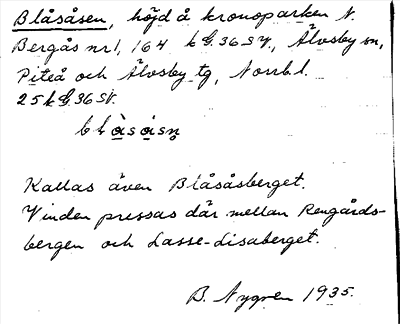 Blåsåsen, höjd å kronoparken N.
Bergås nr 1, 164 k G. 36 SV, Älvsby sn,
Piteå och Älvsby tg, Norrb. l.
25 k G 36 SV.
blåsåsn
Kallas även Blåsåsberget.
Vinden pressas där mellan Rengårds-
bergen och Lasse-Lisaberget.
B. Nygren 1935.